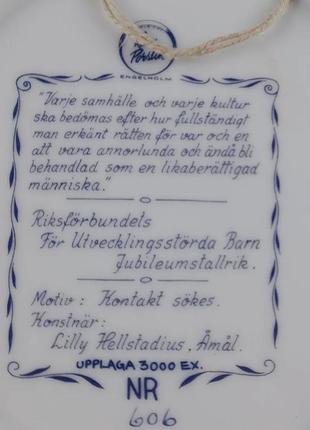 Persson
ENGELHOLM
"Varje samhälle och varje kultur
ska bedömas efter hur fullständigt
man erkänt rätten för var och en
att vara annorlunda och ändå bli
behandlad som en likaberättigad
människa."
Riksförbundets
För Utvecklingsstörda Barn
Jubileumstallrik.
Motiv: Kontakt sökes.
Konstnär:
Lilly Hellstadius, Åmål.
UPPLAGA 3000 EX.
NR
606